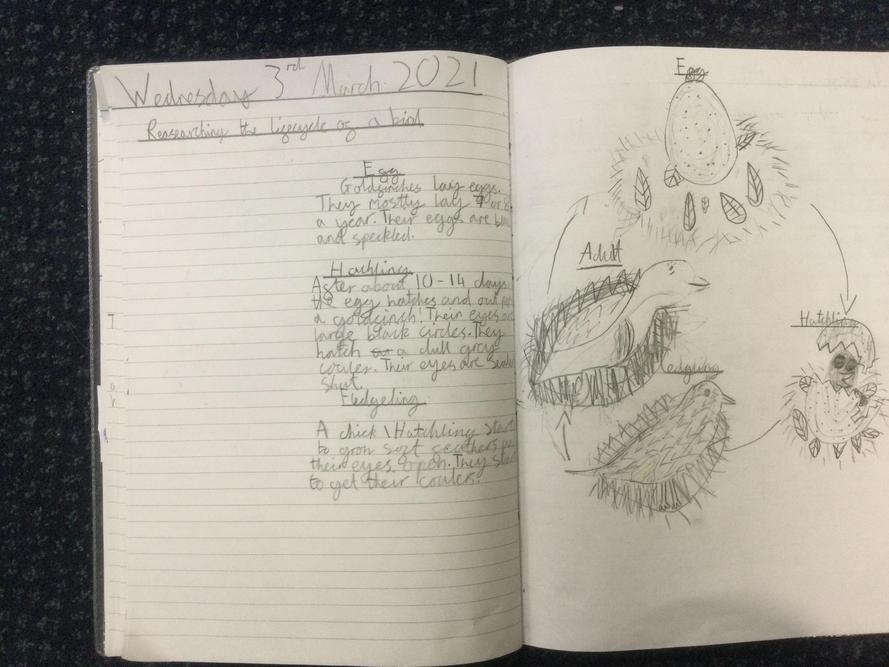 Wednesday 3rd March 2021
Reasearching the lifecycle of a bird
Egg
Goldfinches lay eggs.
They mostly lay or
a year. Their eggs are
and speckled.
Hatchling
After about 10-14 days
the egg hatches and out
a goldfinch! Their eyes
large black circles. They
hatch a dull grey
couler. Their eyes are
shut.
Fledgeling
A chick\Hatchling
to grow soft feathers
their eyes open. They
to get their coulers!
Egg
Adult
Hatchling